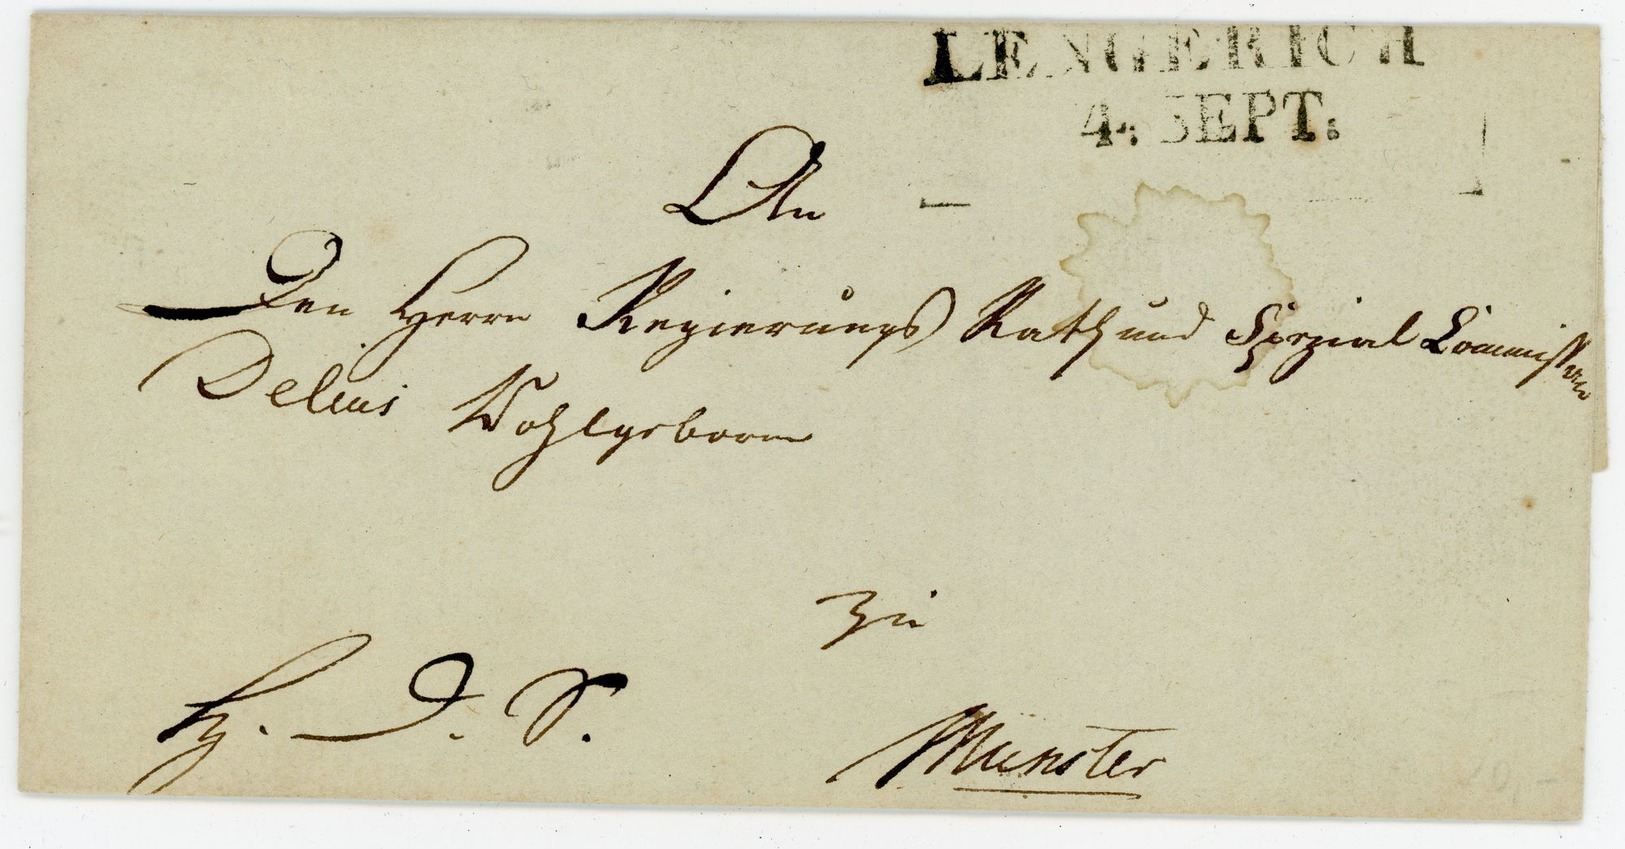 LENGERICH
4. SEPT.
An
Den Herrn Regierungs Rath und Spezial Commissar
Delius Wohlgeborn
zu
H. D. S.
Münster